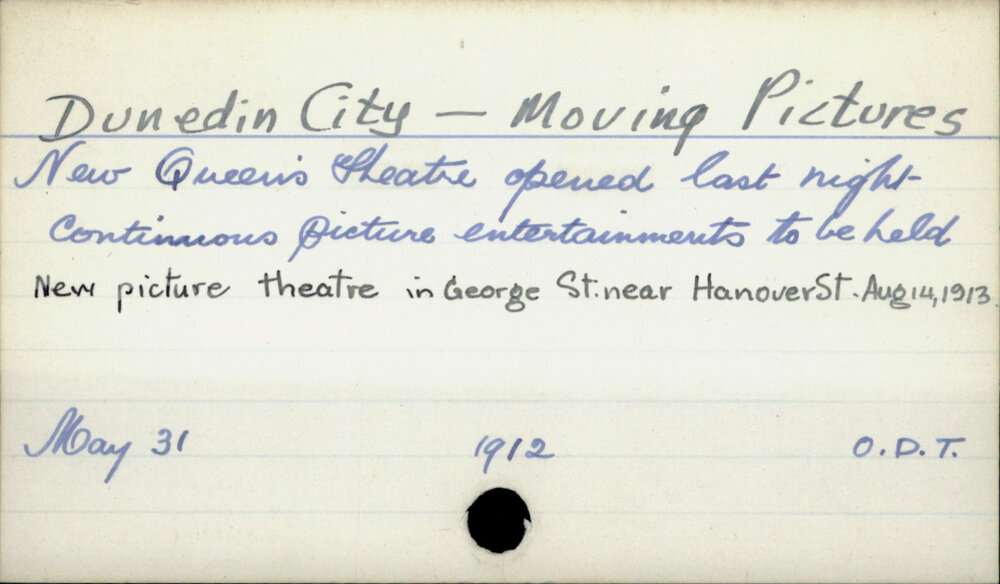 Dunedin City — Moving Pictures
New Queen's Theatre opened last night
Continuous picture entertainments to be held
New picture theatre in George St. near Hanover St. Aug 14, 1913
May 31 1912 O.D.T.